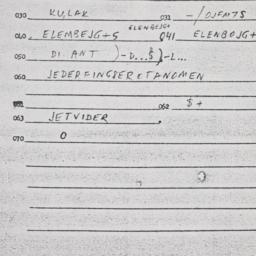 030 KULAK 033 -/OJFAT$
ELENBEJG+
040. ELEMBEJG+S 041 ELENBOJG+
050 DI. ANT )-D...$)-L...
060 JEDERFINGBERETANOMEN
062 $+
063 JETVIDER.
070 0